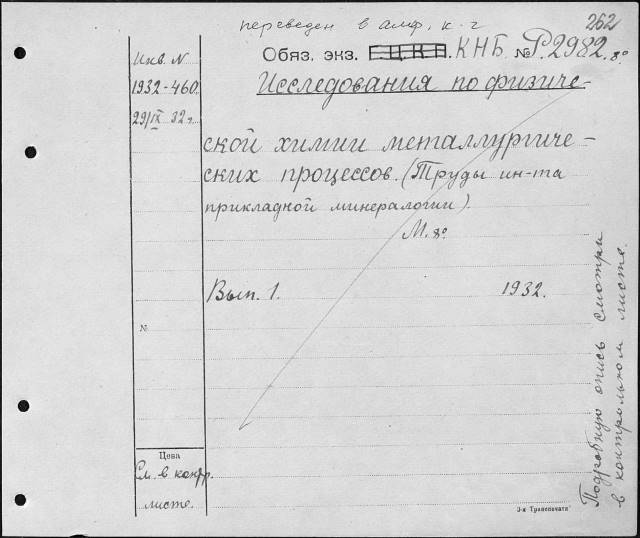 переведен в алф. к-г
262
Обяз. экз. Г.Ц.К.П. КНБ. № Р.2982.8°
Инв. N
1932-460.
29/IX 32 г.
Исследования по физиче-
ской химии металлургиче-
ских процессов. (Труды ин-та
прикладной минералогии).
М. 8°
Вып. 1. 1932.
№
Цена
См. в контр.
листе.
Подробную опись смотри
в контрольном листе.
3-я Транспечати